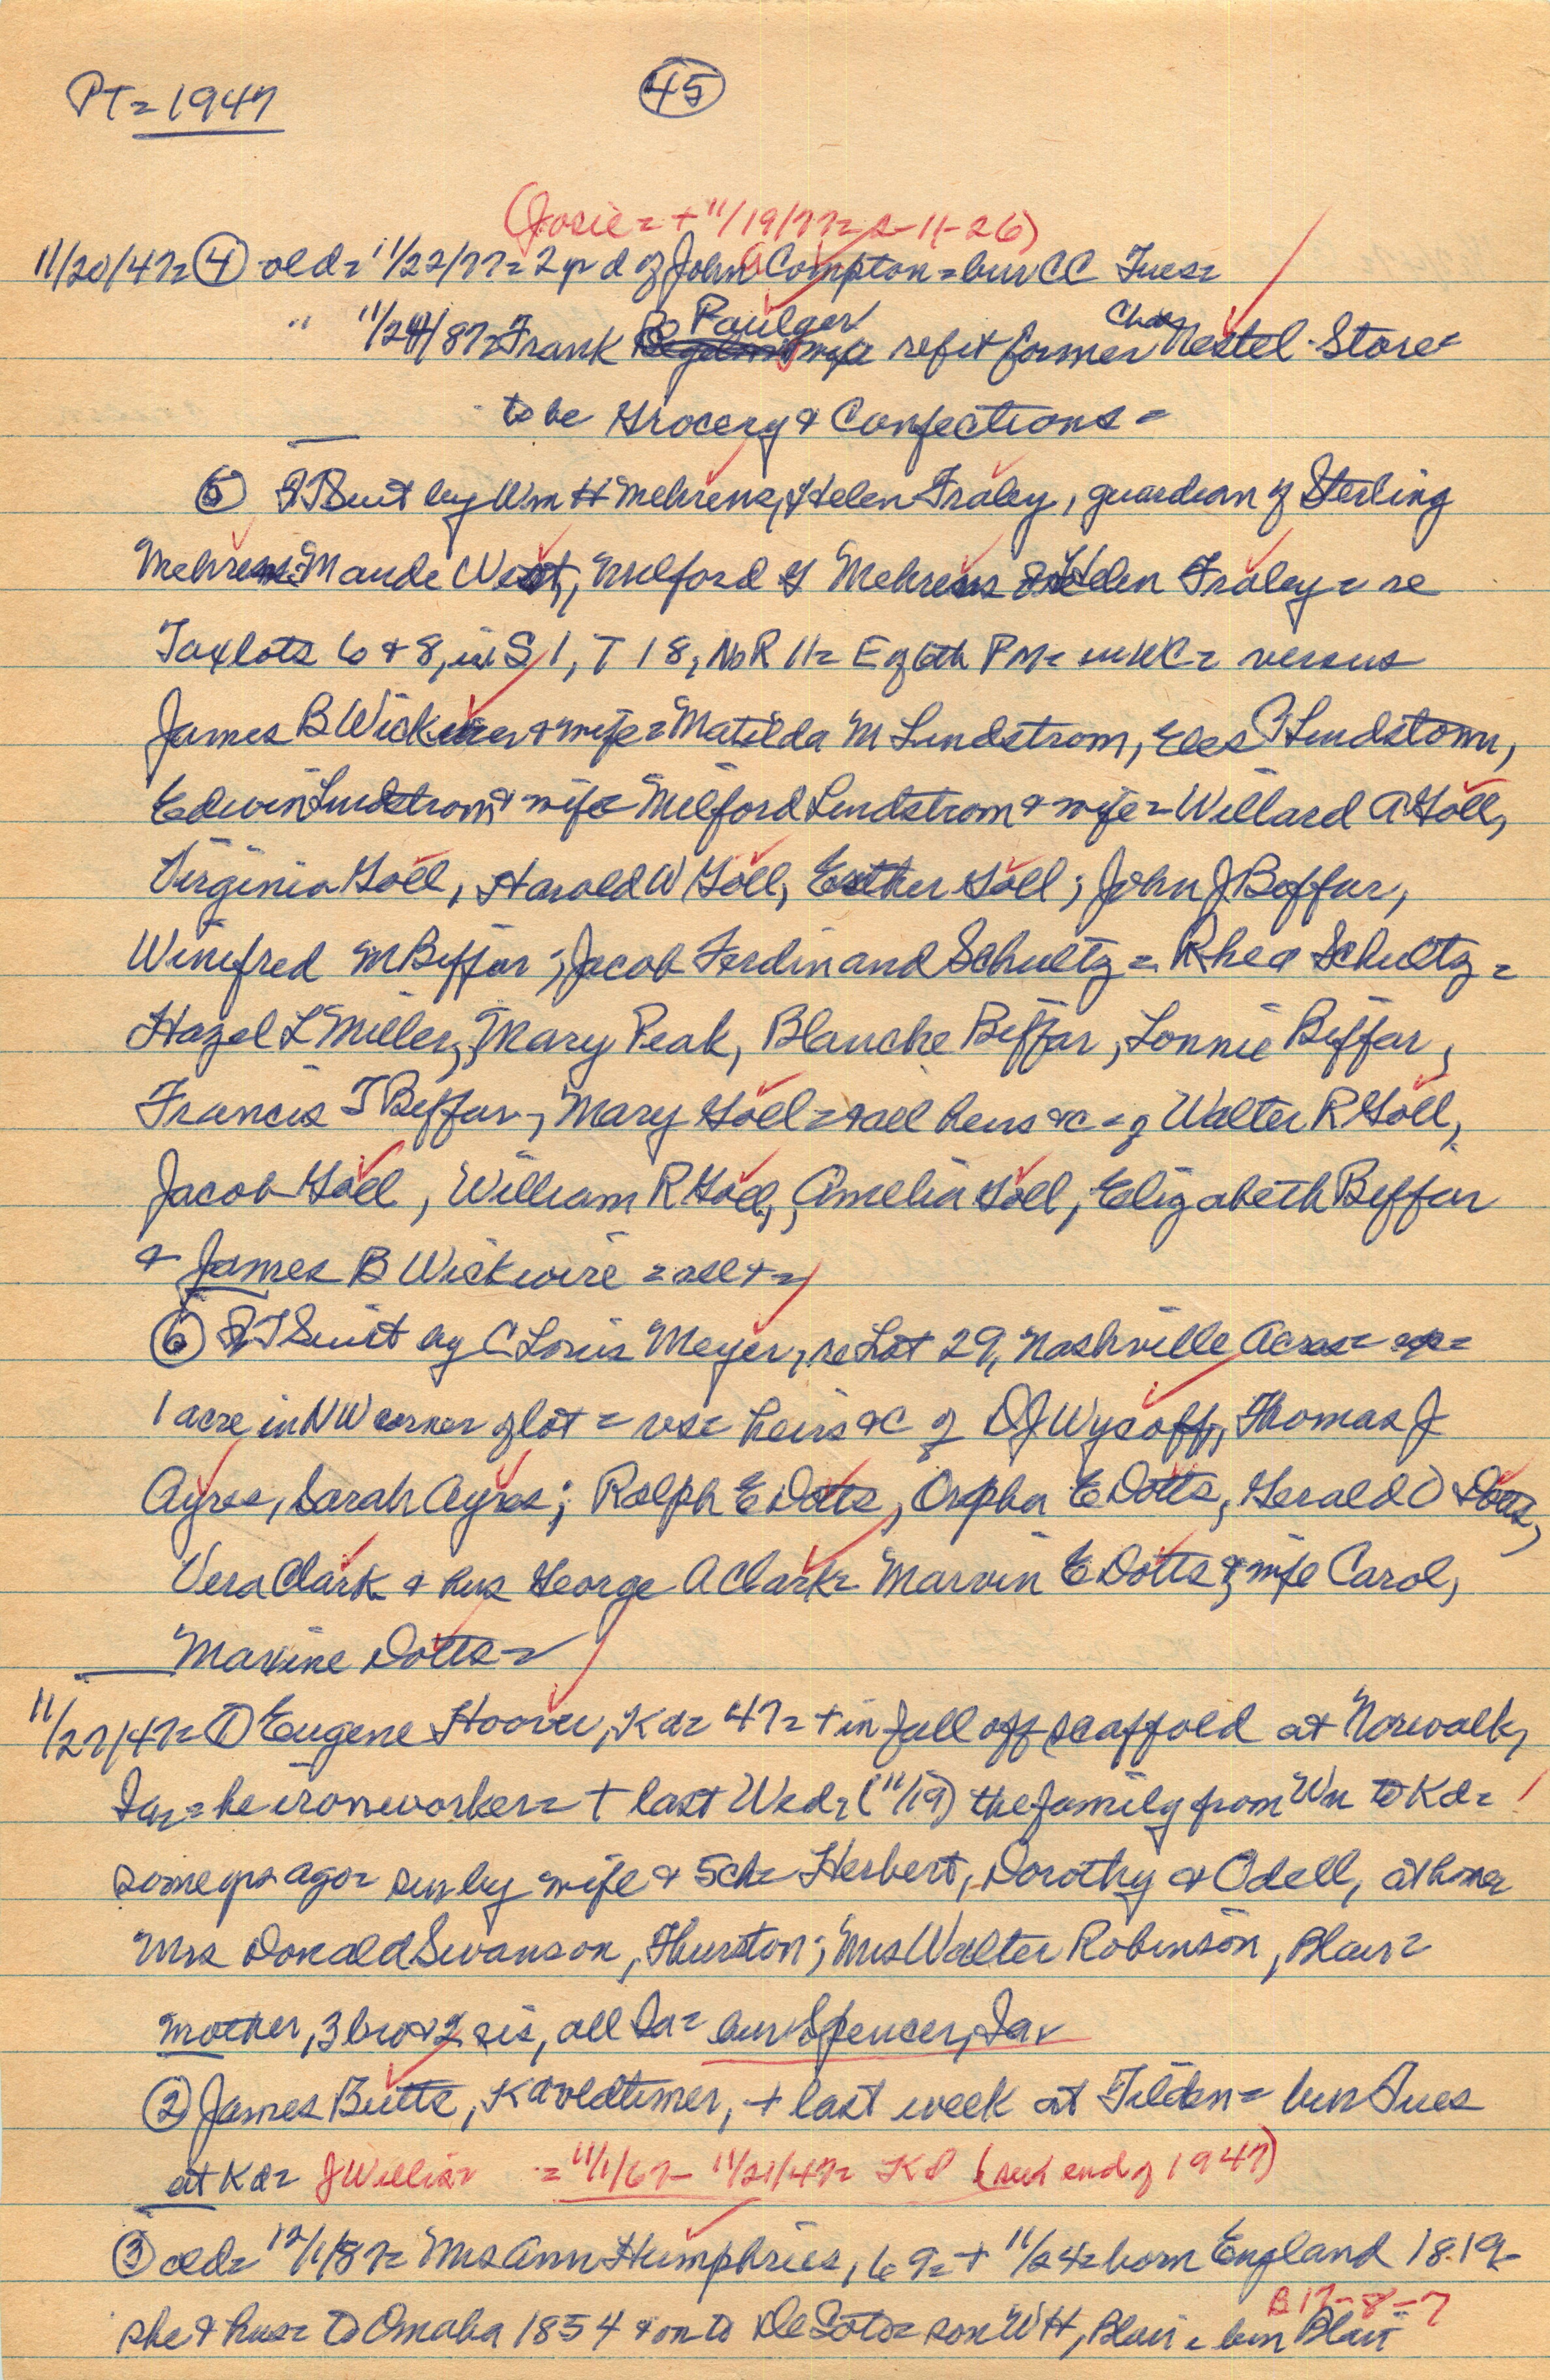 PT = 1947
45
(Josie = + 11/19/77 = 2-11-26)
11/20/47 = 4 old = 11/22/77 = 2 yr d of John A Compton = bur CC Tues =
" 11/24/87 = Frank Paulger refit former Chas Nestel Store =
to be Grocery & Confections =
5 QTSuit by Wm H Mehrens, Helen Fraley, guardian of Sterling
Mehrens = Maude West, Milford G Mehrens & Helen Fraley = re
Taxlots 6 & 8, in S 1, T 18, No R 11 = E of 6th PM = in WC = versus
James B Wickwire & wife = Matilda M Lindstrom, Lindstrom,
Edwin Lindstrom & wife Milford Lindstrom & wife = Willard A Goll,
Virginia Goll, Harold W Goll, Esther Goll; John J Beffar,
Winifred M Beffar; Jacob Ferdinand Schultz = Rhea Schultz =
Hazel L Miller, Mary Peak, Blanche Beffar, Lonnie Beffar,
Francis T Beffar, Mary Goll = & all heirs &c = of Walter R Goll,
Jacob Goll, William R Goll, Amelia Goll, Elizabeth Beffar
& James B Wickwire = all + =
6 QTSuit by C Louis Meyer, re Lot 29, Nashville Acres =
1 acre in NW corner of lot = vs = heirs &c of D J Wycoff, Thomas J
Ayres, Sarah Ayres; Ralph E Dotts, Orpha E Dotts, Gerald O Dotts,
Vera Clark & hus George A Clark = Marvin E Dotts & wife Carol,
Maxine Dotts =
11/27/47 = 1 Eugene Hoover, Kd = 47 = + in fall off scaffold at Norwalk,
Ia = he ironworker = + last Wed = (11/19) the family from Wn to Kd =
some yrs ago = sur by wife & 5 ch = Herbert, Dorothy & Odell, at home
Mrs Donald Swanson, Thurston; Mrs Walter Robinson, Blair =
mother, 3 bro & 2 sis, all Ia = bur Spencer, Ia
2 James Butts, Kd oldtimer, + last week at Tilden = bur Tues
at Kd = J Willis = 11/1/67 - 11/21/47 = Kd (sed end of 1947)
3 old = 12/1/87 = Mrs Ann Humphries, 69 = + 11/24 = born England 1819 -
B 17-8-7
she & hus = to Omaha 1854 & on to De Soto = son W H, Blair = bur Blair